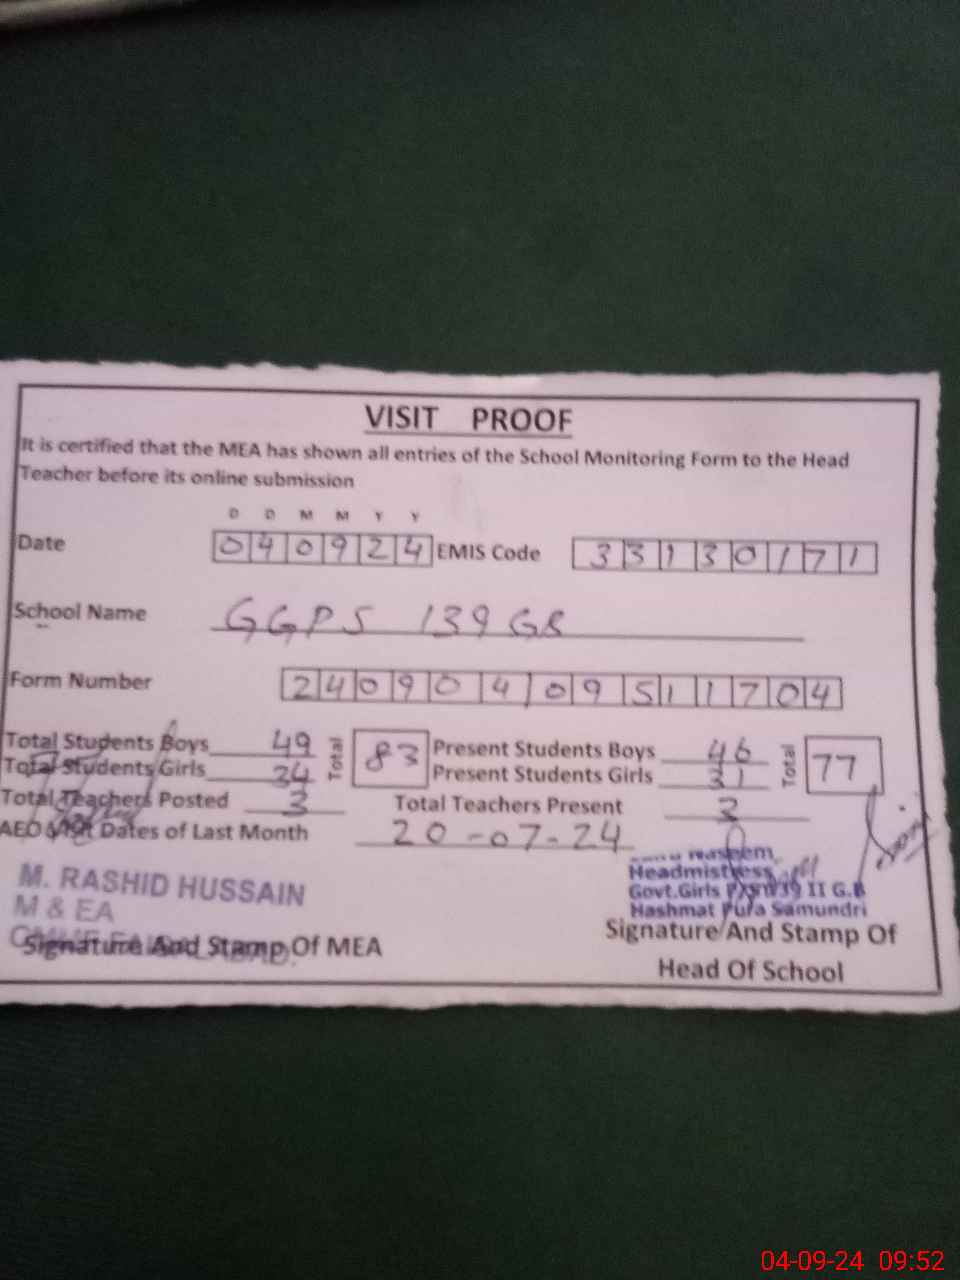 VISIT PROOF
It is certified that the MEA has shown all entries of the School Monitoring Form to the Head
Teacher before its online submission
D D M M Y Y
Date 040924 EMIS Code 33130171
School Name GGPS 139 GB
Form Number 24090409511704
Total Students Boys 49 Total 83 Present Students Boys 46 Total 77
Total Students Girls 34 Present Students Girls 31
Total Teachers Posted 3 Total Teachers Present 3
AEO Visit Dates of Last Month 20-07-24
M. RASHID HUSSAIN
M & EA
Signature And Stamp Of MEA
Naseem
Headmistress
Govt.Girls 139 II G.B
Hashmat Pura Samundri
Signature And Stamp Of
Head Of School
04-09-24 09:52